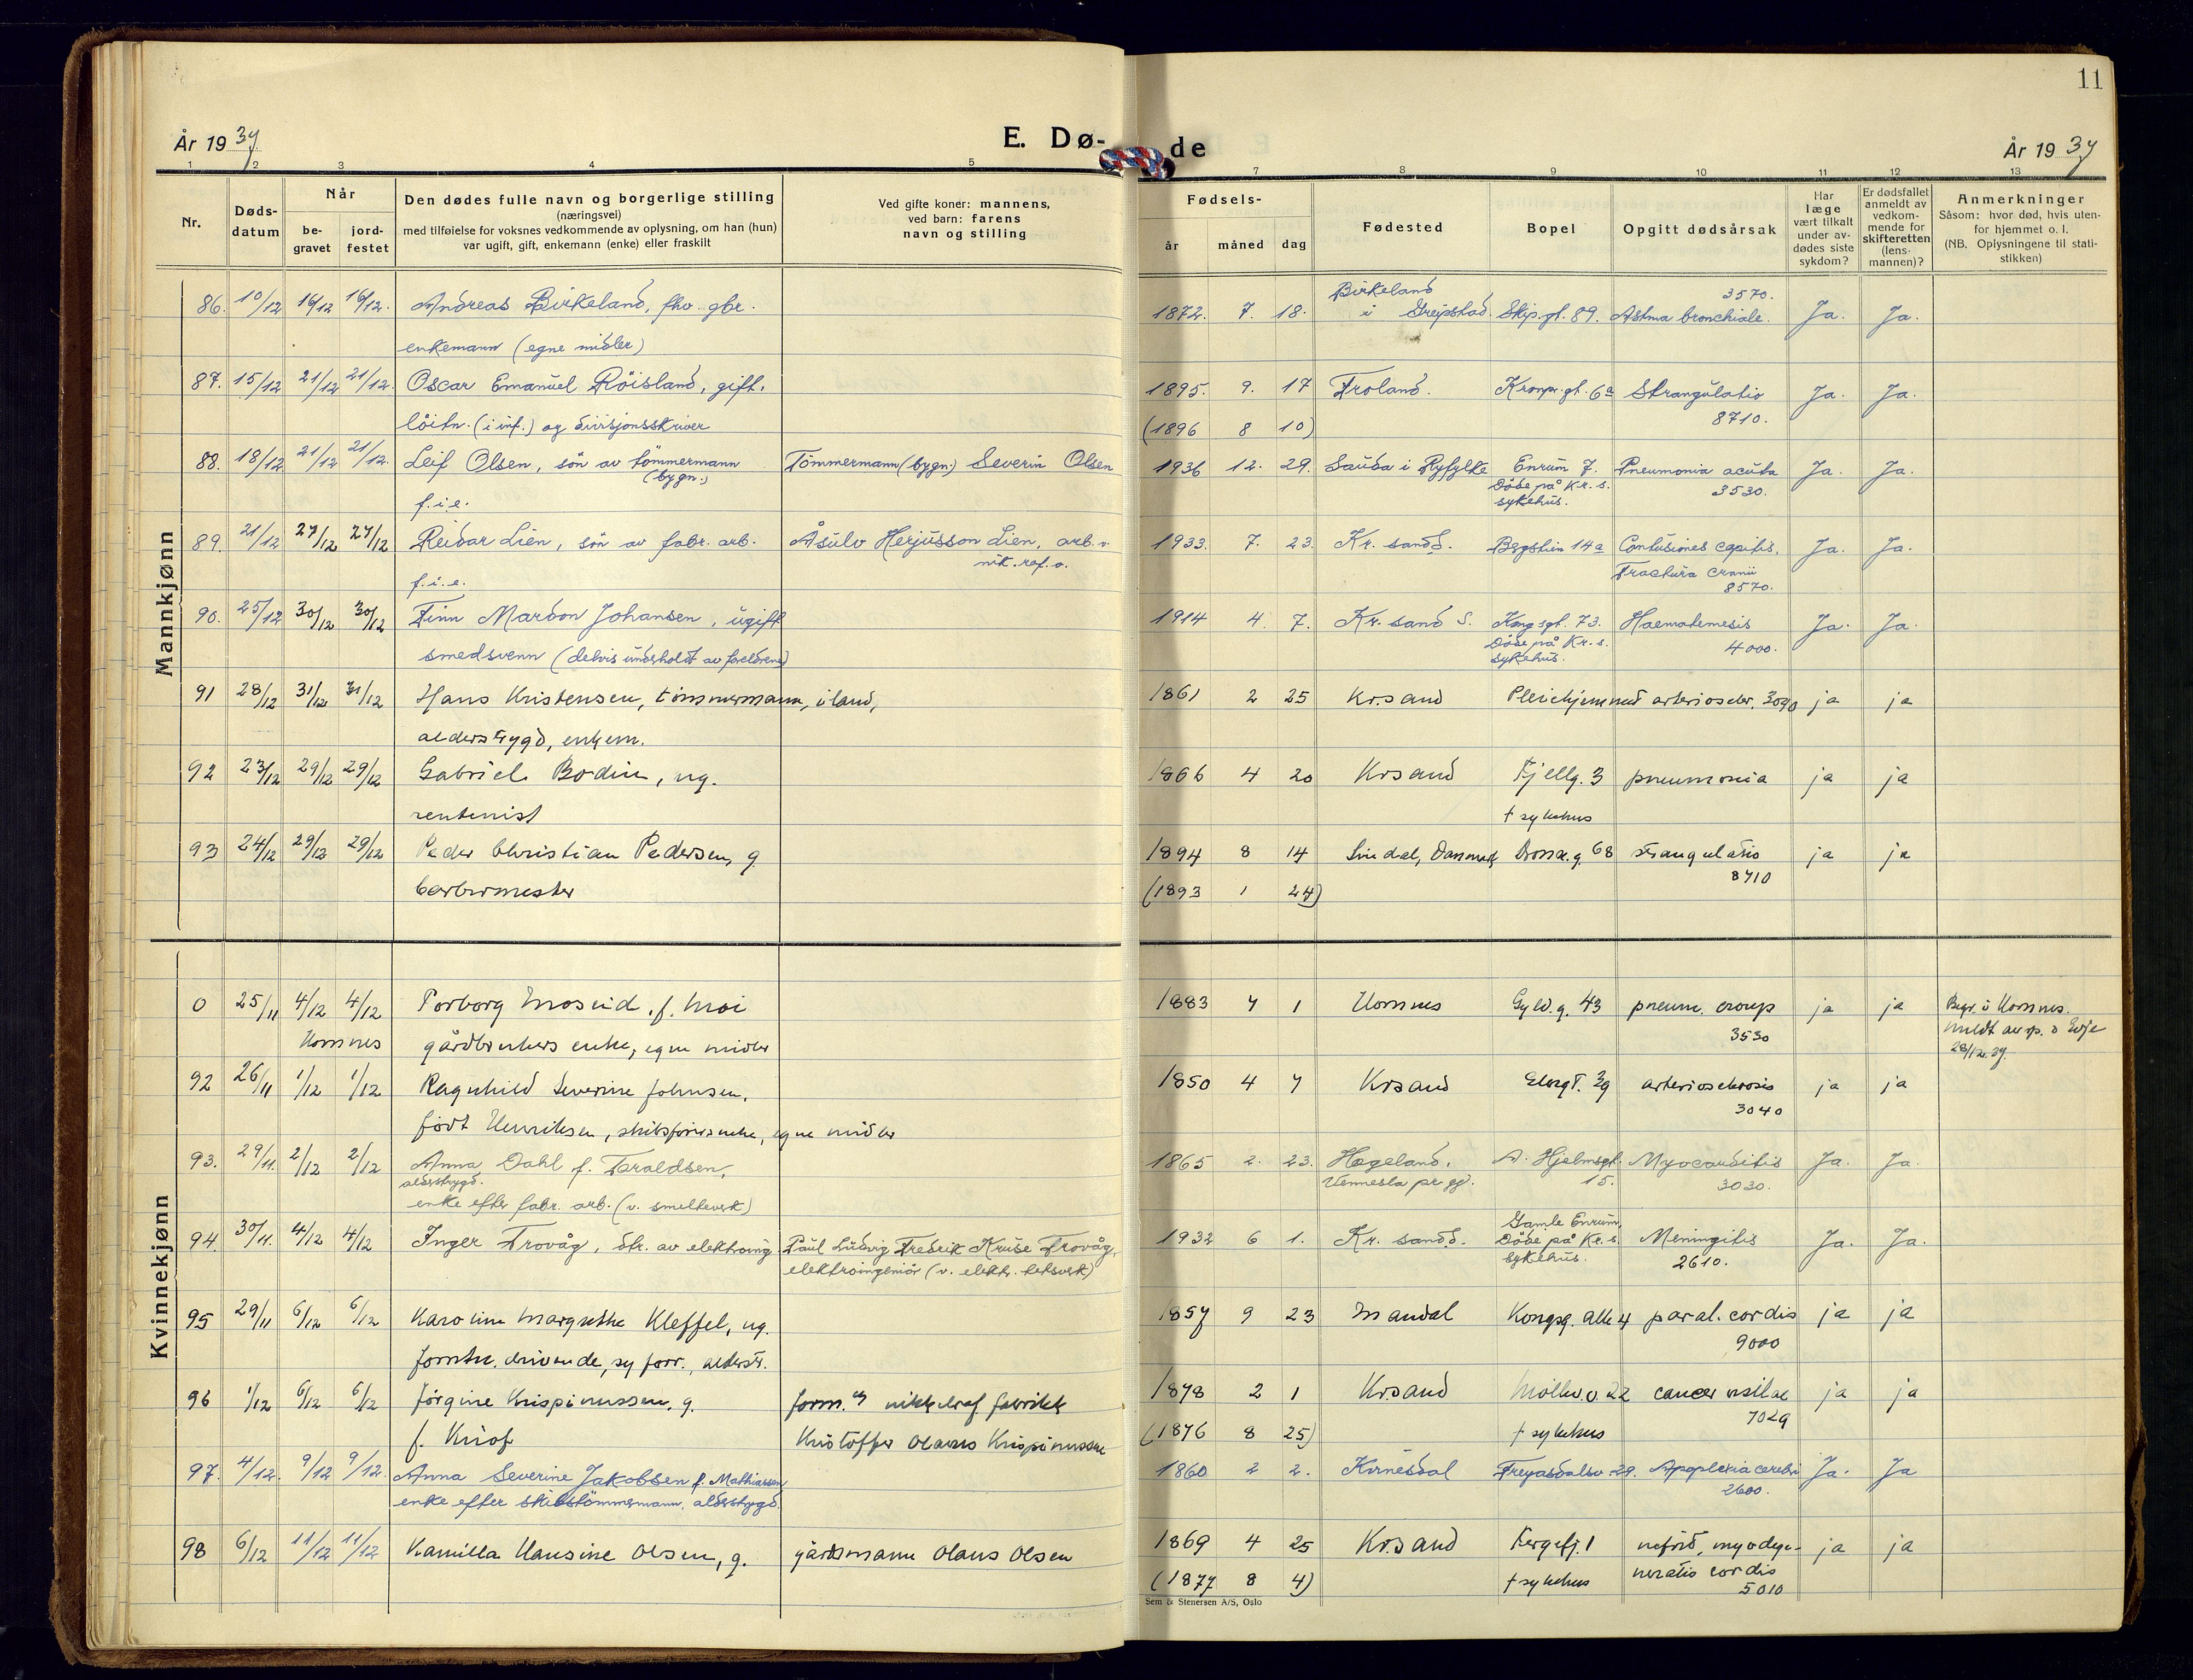 11
År 1937
E. Dø-
de
År 1937
1 2 3 4 5 7 8 9 10 11 12 13
Nr.
Døds-
datum
Når
be-
gravet
jord-
festet
Den dødes fulle navn og borgerlige stilling
(næringsvei)
med tilføielse for voksnes vedkommende av oplysning, om han (hun)
var ugift, gift, enkemann (enke) eller fraskilt
Ved gifte koner: mannens,
ved barn: farens
navn og stilling
Fødsels-
år måned dag
Fødested
Bopel
Opgitt dødsårsak
Har
læge
vært tilkalt
under av-
dødes siste
sykdom?
Er dødsfallet
anmeldt av
vedkom-
mende for
skifteretten
(lens-
mannen)?
Anmerkninger
Såsom: hvor død, hvis uten-
for hjemmet o. l.
(NB. Oplysningene til stati-
stikken)
Mannkjønn
86. 10/12 16/12 16/12. Andreas Birkeland, fhv. gbr.
enkemann (egne midler)
1872. 7. 18. Birkeland
i Greipstad. Skip.gt. 89. Astma bronchiale. 3570. Ja. Ja.
87. 15/12 21/12 21/12. Oscar Emanuel Röisland, gift.
löitn. (i inf.) og divisjonsskriver
1895. 9. 17 Froland. Kronpr.gt. 6a Strangulatio Ja. Ja.
(1896 8 10) 8710.
88. 18/12 21/12 21/12. Leif Olsen, sön av tömmermann
(bygn.)
f.i.e.
Tömmermann (bygn.) Severin Olsen
1936 12. 29. Sauda i Ryfylke Enrum 7. Pneumonia acuta Ja. Ja.
Döde på Kr.s. 3530.
sykehus.
89. 21/12 27/12 27/12 Reidar Lien, sön av fabr. arb.
f.i.e.
Åsulv Herjusson Lien, arb. v.
nik. raf. v.
1933. 7. 23. Kr. sand S. Bergstien 14a Contusiones capitis. Ja. Ja.
Fractura cranii
8570.
90. 25/12 30/12 30/12 Finn Mardon Johansen, ugift
smedsvenn (delvis underholdt av foreldrene)
1914 4. 7. Kr. sand S. Kongsgt. 73. Haematemesis Ja. Ja.
Döde på Kr.s. 4000.
sykehus.
91 28/12 31/12 31/12 Hans Kristensen, tömmermann, iland,
alderstrygd, enkem.
1861 2 25 Kr.sand Pleiehjemmet arterioscler. 3040 ja ja
92 23/12 29/12 29/12 Gabriel Bodin, ug.
rentenist
1866 4 20 Krsand Fjellg. 3 pneumonia ja ja
† sykehus
93 24/12 29/12 29/12 Peder Christian Pedersen, g
barbermester
1894 8 14 Lindal, Danmark Dronn.g. 68 strangulatio ja ja
(1893 1 24) 8710
Kvinnekjønn
0 25/11 4/12 4/12 Torborg Moseid f. Moi
Hornnes gårdbrukers enke, egne midler
1883 7 1 Hornnes Gyld.g. 43 pneum. croup ja ja Begr. i Hornnes.
3530 meldt av sp. i Evje
28/12.37.
92 26/11 1/12 1/12 Ragnhild Severine Johnsen,
födt Henriksen, skibsförers enke, egne midler
1850 4 7 Krsand Elvegt. 39 arteriosclerosis ja ja
3040
93. 29/11. 2/12 2/12 Anna Dahl f. Taraldsen,
alderstrygd.
enke efter fabr. arb. (v. smelteverk)
1865 2. 23. Hægeland, A. Hjelmsgt. Myocarditis Ja. Ja.
Vennesla pr.gj. 15. 3030.
94. 30/11. 4/12 4/12 Inger Trovåg, dtr. av elektroing.
Paul Ludvig Fredrik Kruse Trovåg,
elektroingeniör (v. elektr. hetsverk)
1932 6 1. Kr. sand S. Gamle Enrum, Meningitis Ja. Ja.
Döde på Kr.s. 2610.
sykehus.
95 29/11 6/12 6/12 Karoline Margrethe Kleffel, ug.
forntn. drivende, sy forr., alderstr.
1857 9 23 Mandal Kongsg. alle 4 paral. cordis ja ja
9000
96 1/12 6/12 6/12 Jörgine Krispinussen, g.
f. Kriof
form. nikkelraf fabrikk
Kristoffer Olaus Krispinussen
1878 2 1 Krsand Möllev. 22 cancer ja ja
(1876 8 25) † sykehus 7029
97. 4/12. 9/12 9/12. Anna Severine Jakobsen f. Mathiassen
enke efter skibstömmermann. alderstrygd.
1860 2 2. Kvinesdal Freyasdalsv. 29. Apoplexia cerebri Ja. Ja
2600.
98 6/12 11/12 11/12 Kamilla Hansine Olsen, g.
gårdsmann Olaus Olsen
1869 4 25 Kr.sand Tergefj. 1 nefrid, myodege- ja ja
(1877 8 4) † sykehus neratio cordis
5010
Sem & Stenersen A/S, Oslo